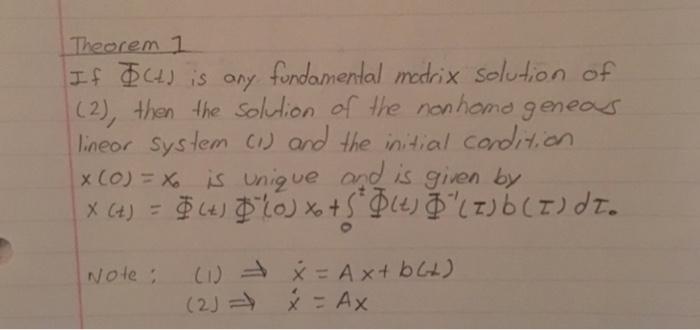 Theorem 1
If Φ(t) is any fundamental matrix solution of
(2), then the solution of the nonhomogeneous
linear system (1) and the initial condition
x(0) = x₀ is unique and is given by
x(t) = Φ(t) Φ⁻¹(0) x₀ + ∫₀ᵗ Φ(t) Φ⁻¹(τ) b(τ) dτ.
Note : (1) ⇒ ẋ = Ax + b(t)
(2) ⇒ ẋ = Ax